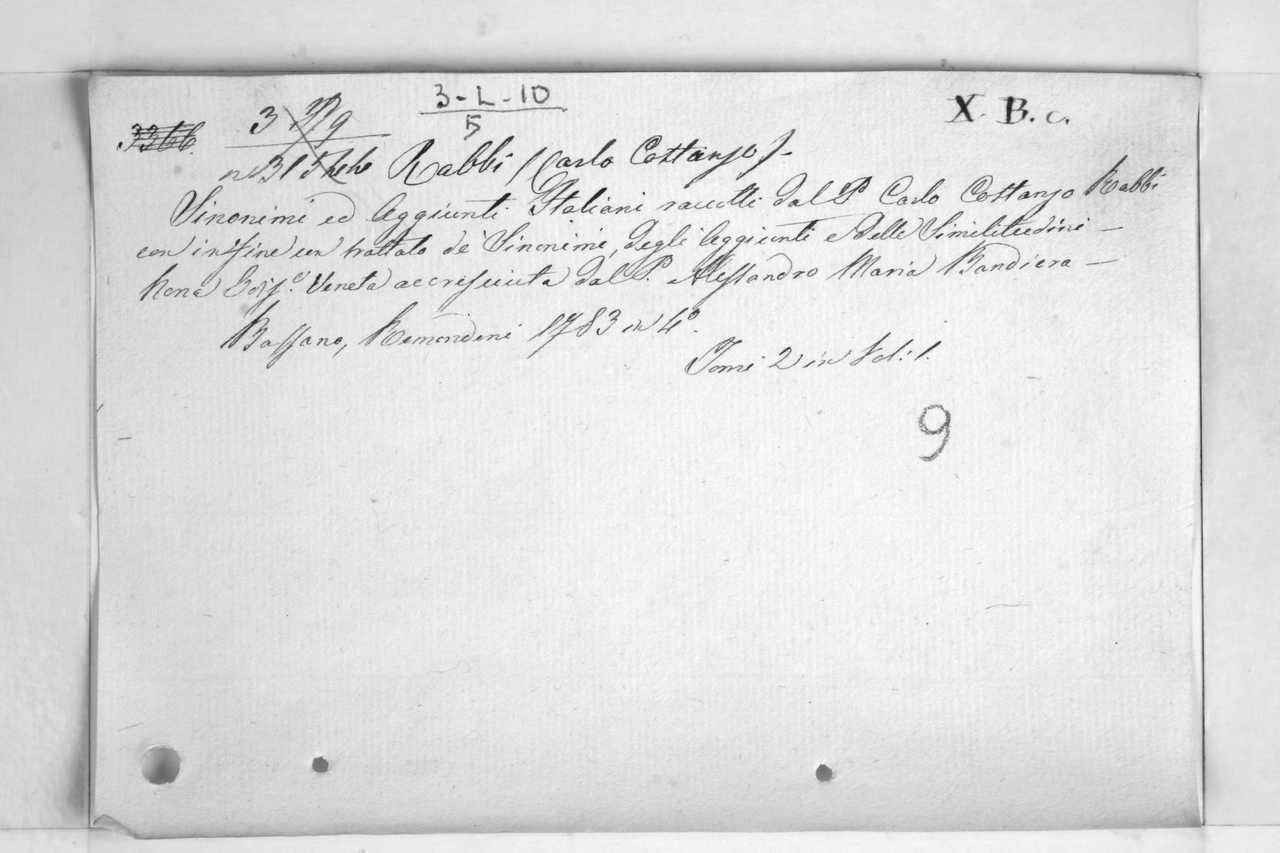 3-L-10
5
X. B. c.
3366
3
Rabbi (Carlo Costanzo) -
Sinonimi ed Aggiunti Italiani raccolti dal P. Carlo Costanzo Rabbi
con in fine un trattato de' Sinonimi, degli Aggiunti e delle Similitudini -
Nona Ediz.e Veneta accresciuta dal P. Alessandro Maria Bandiera -
Bassano, Remondini 1783 in 4o.
Tomi 2 in Vol: 1.
9